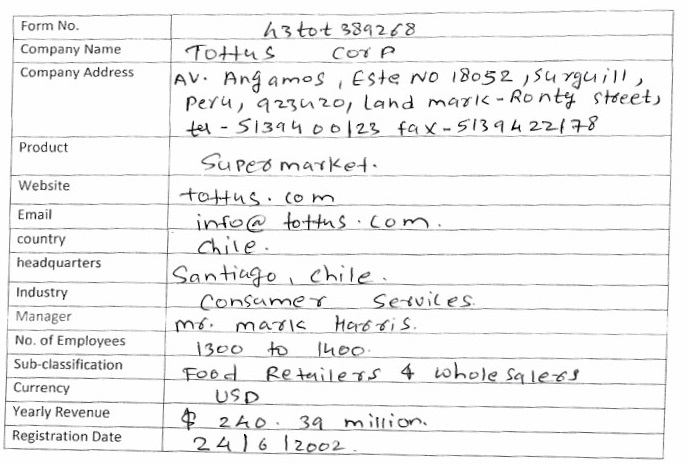 Form No. h3tot389268
Company Name Tottus Corp
Company Address AV. Angamos, Este NO 18052, Surquill,
Peru, 923420, Land mark - Ronty street,
tel - 5139400123 fax - 5139422178
Product Supermarket.
Website tottus.com
Email info@tottus.com.
country Chile.
headquarters Santiago, Chile.
Industry Consumer Services.
Manager mr. mark Harris.
No. of Employees 1300 to 1400.
Sub-classification Food Retailers & wholesalers
Currency USD
Yearly Revenue $ 240.39 million.
Registration Date 24/6/2002.